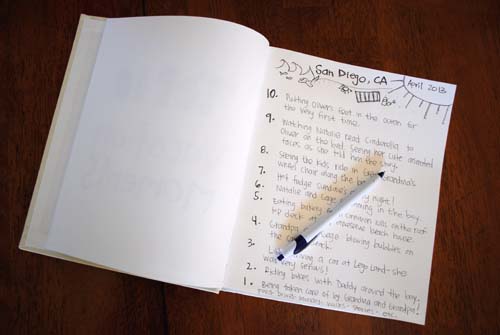 San Diego, CA
April 2013
10. Putting Oliver's feet in the ocean for
the very first time.
9. Watching Natalie read Cinderella to
Oliver on the bed. Seeing her cute animated
faces as she told him the story.
8. Seeing the kids ride in Great Grandma's
wheel chair along the
7. Hot fudge sundaes night!
6. Natalie and Gage swimming in the bay.
5. Eating bakery cinnamon rolls on the roof
top deck at reserve beach house.
4. Grandpa Gage blowing bubbles on
the
3. driving a car at Lego Land - she
was very serious!
2. Riding bikes with Daddy around the bay.
1. Being taken care of by Grandma and Grandpa!
- laundry - - stories - etc.